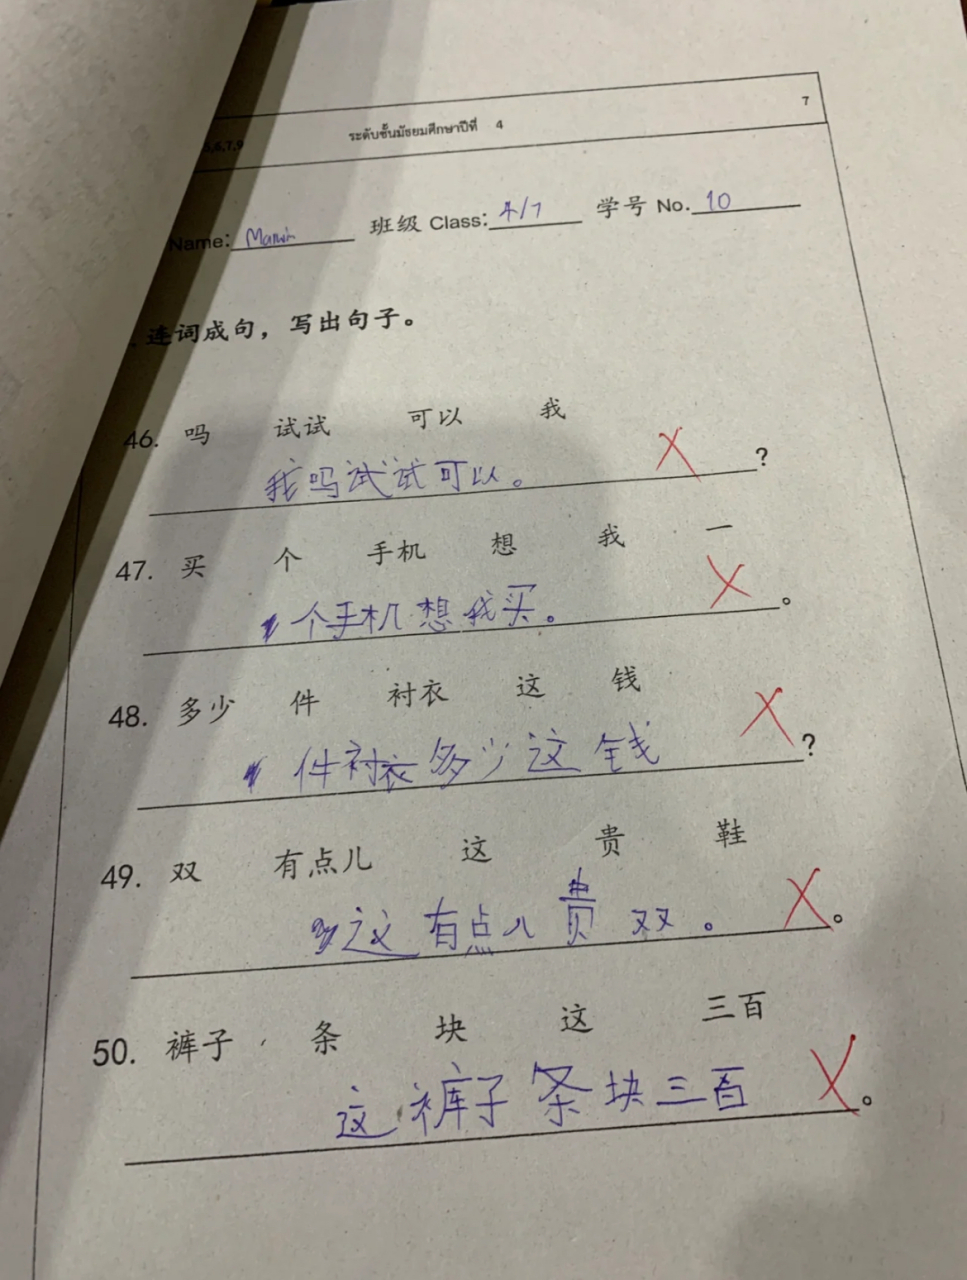 7
5,6,7,9 ระดับชั้นมัธยมศึกษาปีที่ 4
Name: 班级 Class: 4/7 学号 No. 10
连词成句，写出句子。
46. 吗 试试 可以 我
我吗试试可以。 ?
47. 买 个 手机 想 我 一
个手机想我买。 。
48. 多少 件 衬衣 这 钱
件衬衣多少这钱 ?
49. 双 有点儿 这 贵 鞋
这有点儿贵双。 。
50. 裤子 条 块 这 三百
这裤子条块三百 。